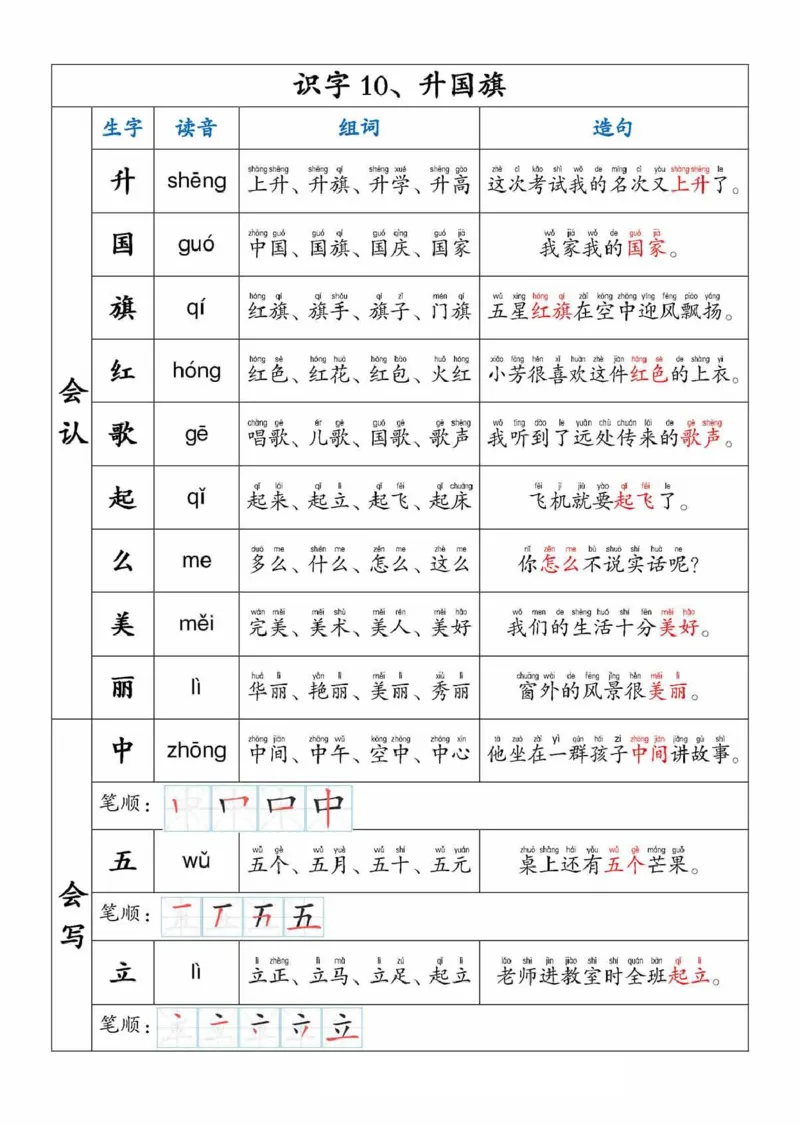 识字 10、升国旗
生字 读音 组词 造句
会认
shàng shēng shēng qí shēng xué shēng gāo zhè cì kǎo shì wǒ de míng cì yòu shàng shēng le
升 shēng 上升、升旗、升学、升高 这次考试我的名次又上升了。
zhōng guó guó qí guó qìng guó jiā wǒ jiā wǒ de guó jiā
国 guó 中国、国旗、国庆、国家 我家我的国家。
hóng qí qí shǒu qí zi mén qí wǔ xīng hóng qí zài kōng zhōng yíng fēng piāo yáng
旗 qí 红旗、旗手、旗子、门旗 五星红旗在空中迎风飘扬。
hóng sè hóng huā hóng bāo huǒ hóng xiǎo fāng hěn xǐ huān zhè jiàn hóng sè de shàng yī
红 hóng 红色、红花、红包、火红 小芳很喜欢这件红色的上衣。
chàng gē ér gē guó gē gē shēng wǒ tīng dào le yuǎn chù chuán lái de gē shēng
歌 gē 唱歌、儿歌、国歌、歌声 我听到了远处传来的歌声。
qǐ lái qǐ lì qǐ fēi qǐ chuáng fēi jī jiù yào qǐ fēi le
起 qǐ 起来、起立、起飞、起床 飞机就要起飞了。
duō me shén me zěn me zhè me nǐ zěn me bù shuō shí huà ne
么 me 多么、什么、怎么、这么 你怎么不说实话呢?
wán měi měi shù měi rén měi hǎo wǒ men de shēng huó shí fēn měi hǎo
美 měi 完美、美术、美人、美好 我们的生活十分美好。
huá lì yàn lì měi lì xiù lì chuāng wài de fēng jǐng hěn měi lì
丽 lì 华丽、艳丽、美丽、秀丽 窗外的风景很美丽。
会写
zhōng jiān zhōng wǔ kōng zhōng zhōng xīn tā zuò zài yì qún hái zi zhōng jiān jiǎng gù shì
中 zhōng 中间、中午、空中、中心 他坐在一群孩子中间讲故事。
笔顺: 中
wǔ gè wǔ yuè wǔ shí wǔ yuán zhuō shàng hái yǒu wǔ gè máng guǒ
五 wǔ 五个、五月、五十、五元 桌上还有五个芒果。
笔顺: 五
lì zhèng lì mǎ lì zú qǐ lì lǎo shī jìn jiào shì shí quán bān qǐ lì
立 lì 立正、立马、立足、起立 老师进教室时全班起立。
笔顺: 立